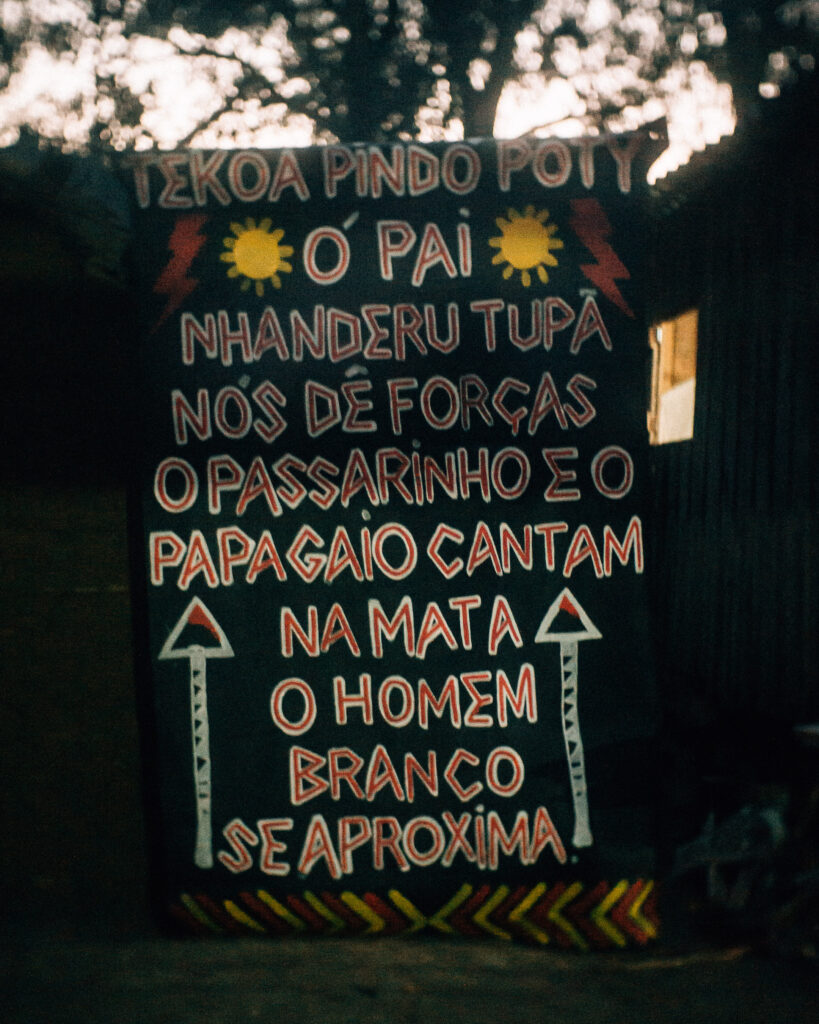 TEKOA PINDO POTY
Ó PAI
NHANDERU TUPÃ
NÓS DÊ FORÇAS
O PASSARINHO E O
PAPAGAIO CANTAM
NA MATA
O HOMEM
BRANCO
SE APROXIMA.